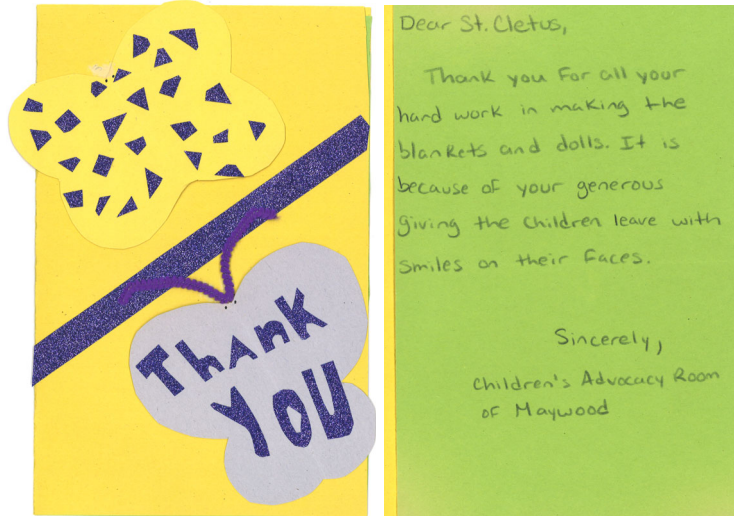 Thank
You
Dear St. Cletus,
Thank you For all your
hard work in making the
blankets and dolls. It is
because of your generous
giving the children leave with
smiles on their faces.
Sincerely,
Children's Advocacy Room
of Maywood